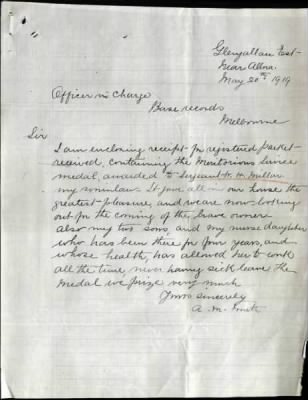 Glengallan East
Near Allora.
May 20th 1919
Officer in Charge
Base records
Melbourne
Sir
I am enclosing receipt for registered packet
received, containing the Meritorious Service
medal, awarded to Sergeant H. Millar
my soninlaw. It gave all in our house the
greatest pleasure, and we are now looking
out for the coming of the brave owner
also my two sons, and my nurse daughter
who has been there for four years, and
whose health, has allowed her to work
all the time, never having sick leave the
medal we prize very much
Yours sincerely
A. M.